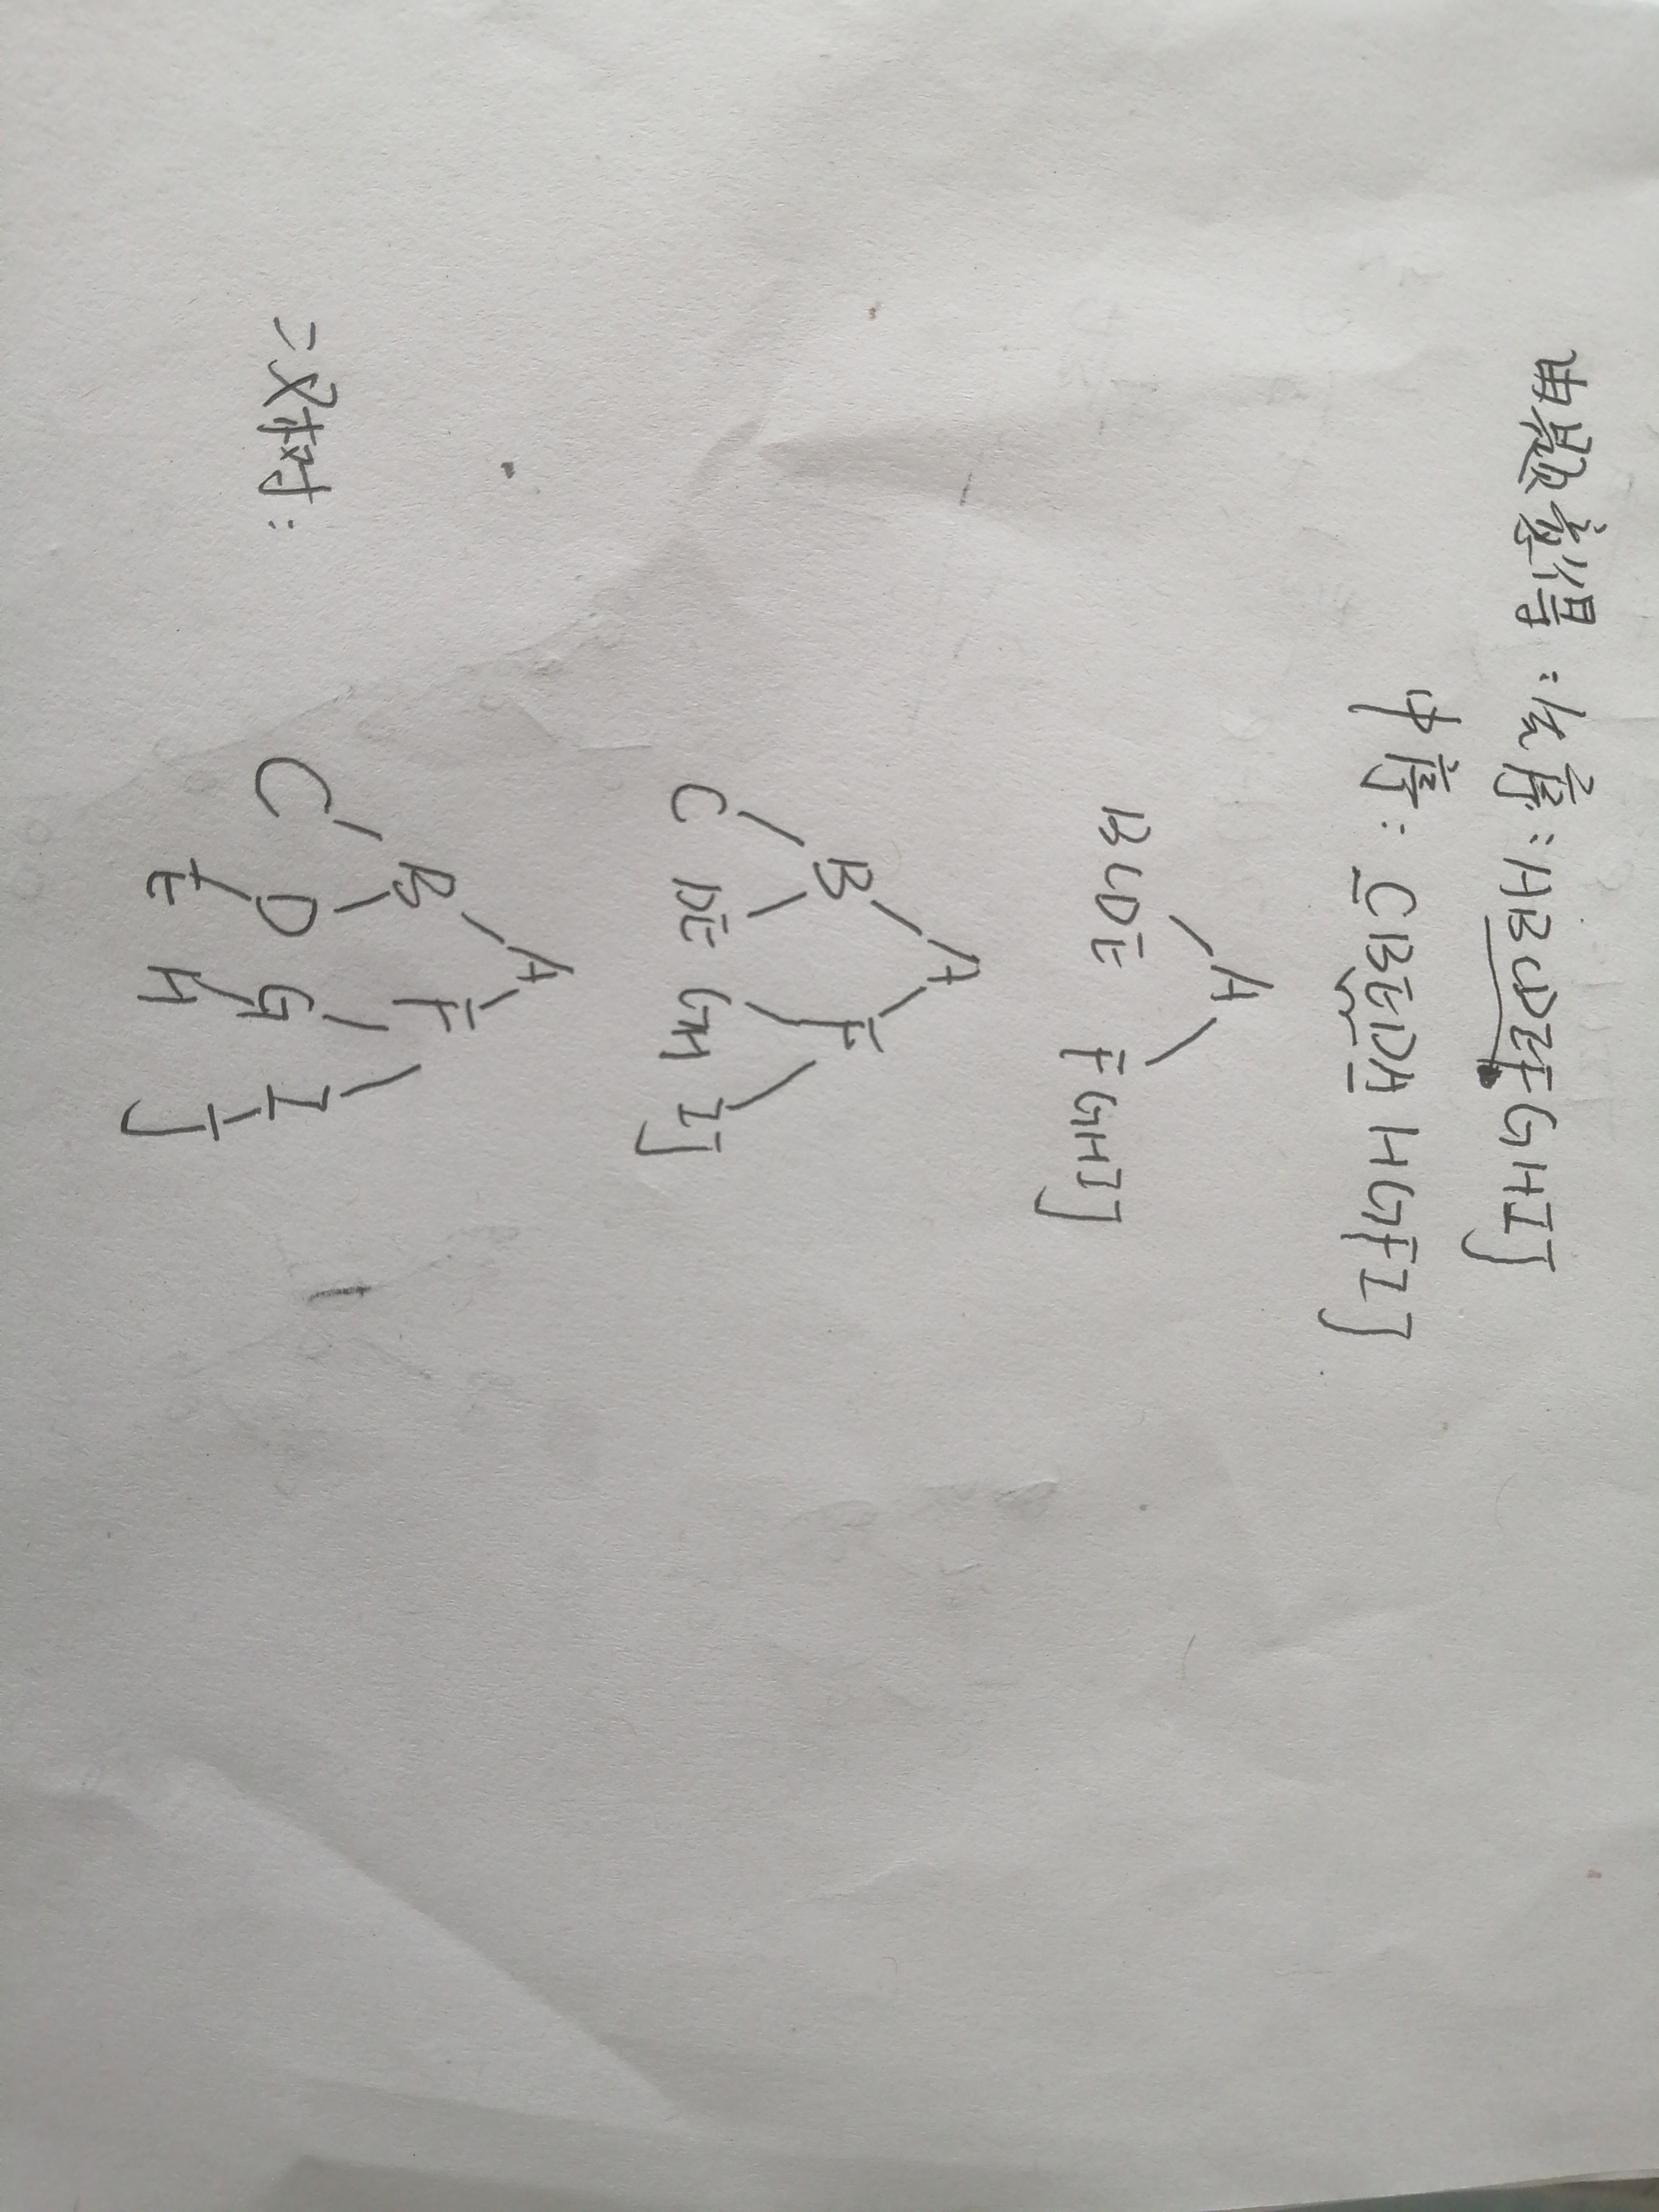 由题意得:先序:ABCDEFGHIJ
中序:CBEDAHGFIJ
A
BCDE FGHIJ
A
B F
C DE GH IJ
二叉树:
A
B F
C D G I
E H J